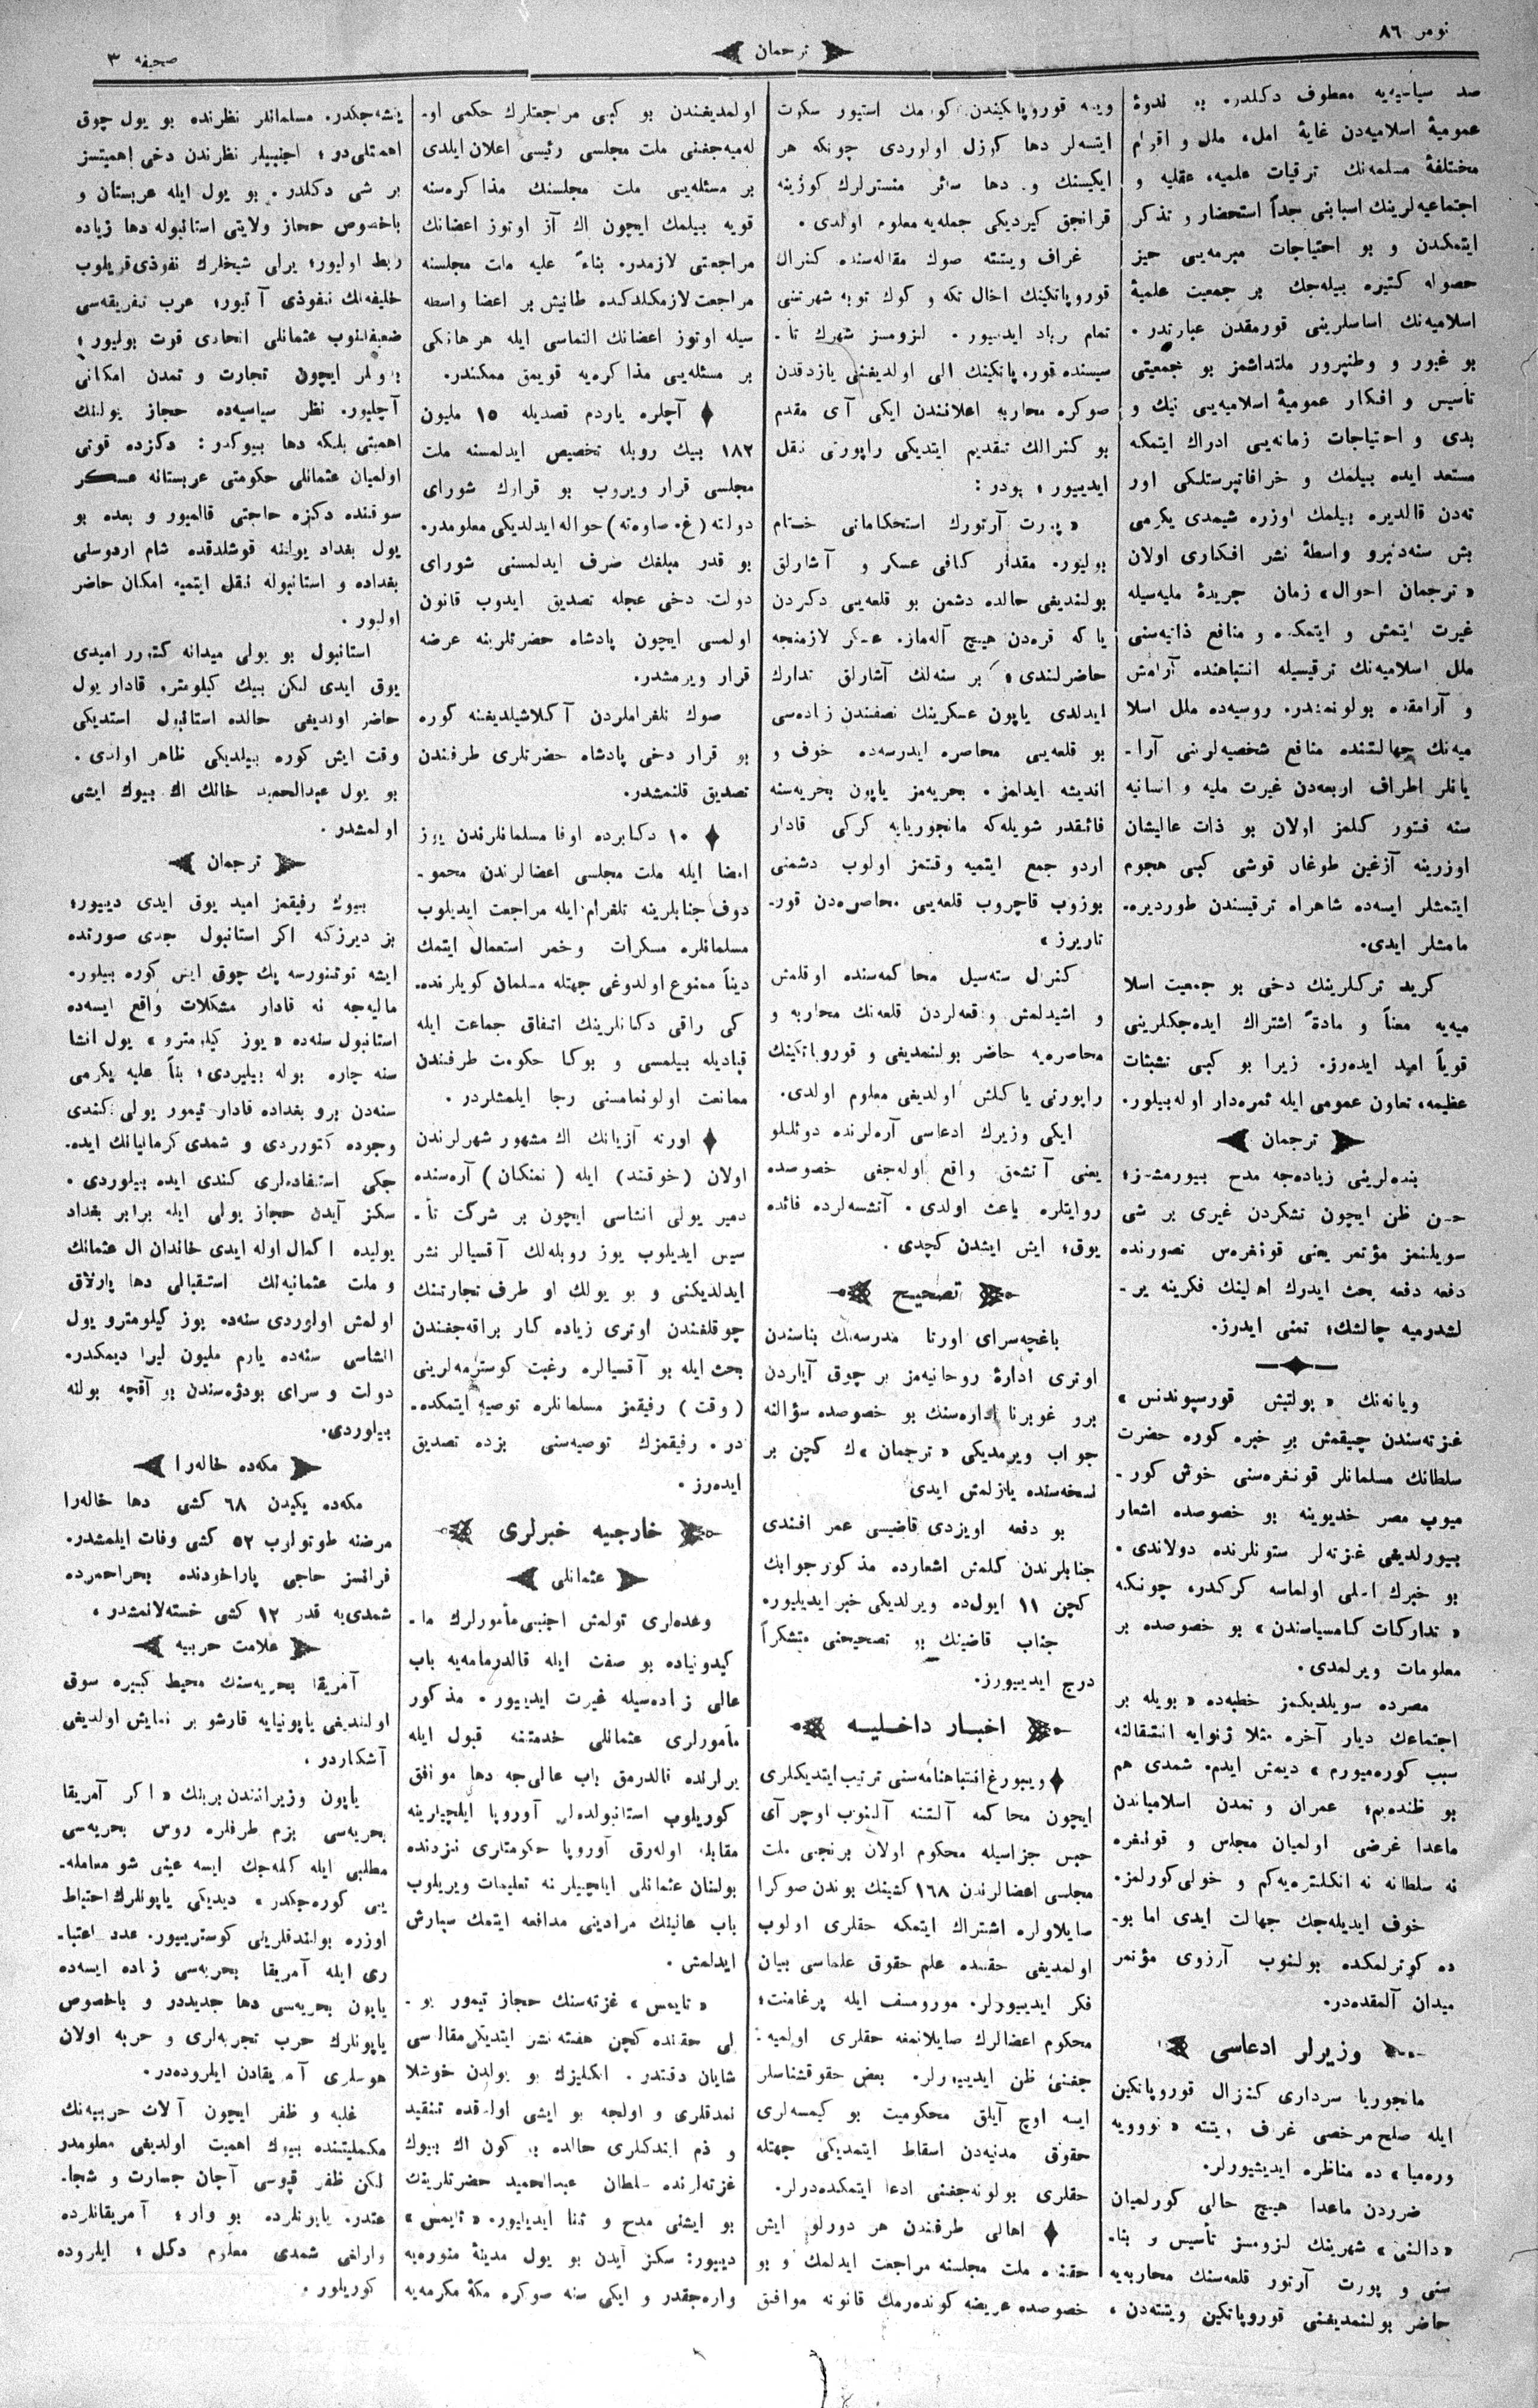 نومر ٨٦
ترجمان
صحيفه ٣
صد سياسيه‌يه معطوف دكلدر. بو ندوۀ
عموميۀ اسلاميه‌دن غايۀ امل، ملل و اقوام
مختلفۀ مسلمه‌نك ترقيات علميه، عقليه و
اجتماعيه‌لرينك اسبابنى جداً استحضار و تذكر
ايتمكدن و بو احتياجات مبرمه‌يى حيز
حصوله كتيره بيله‌جك بر جمعيت علميۀ
اسلاميه‌نك اساسلرينى قورمقدن عبارتدر.
بو غيور و وطنپرور ملتداشمز بو جمعيتى
تأسيس و افكار عموميۀ اسلاميه‌يى نيك و
بدى و احتياجات زمانه‌يى ادراك ايتمكه
مستعد ايده بيلمك و خرافاتپرستلكى اور
ته‌دن قالديره بيلمك اوزره شيمدى يكرمى
بش سنه‌دنبرو واسطۀ نشر افكارى اولان
«ترجمان احوال» زمان جريدۀ مليه‌سيله
غيرت ايتمش و ايتمكده و منافع ذاتيه‌سنى
ملل اسلاميه‌نك ترقيسيله انتباهنده آرامش
و آرامقده بولونمشدر. روسيه‌ده ملل اسلا
ميه‌نك جهالتنده منافع شخصيه‌لرينى آرا-
يانلر اطراف اربعه‌دن غيرت مليه و انسانيه
سنه فتور كلمز اولان بو ذات عاليشان
اوزرينه آزغين طوغان قوشى كبى هجوم
ايتمشلر ايسه‌ده شاهراه ترقيسندن طورديره.
مامشلر ايدى.
كريد تركلرينك دخى بو جمعيت اسلا
ميه‌يه معناً و مادةً اشتراك ايده‌جكلرينى
قوياً اميد ايده‌رز. زيرا بو كبى تشبثات
عظيمه، تعاون عمومى ايله ثمره‌دار اوله‌بيلور.
ترجمان
بنده‌لرينى زياده‌جه مدح بيورمشسز؛
حسن ظن ايچون تشكردن غيرى بر شى
سويلنمز مؤتمر يعنى قونغره‌س تصورنده
دفعه دفعه بحث ايدرك اهلينك فكرينه ير-
لشدرميه چالشك؛ تمنى ايدرز.
ويانه‌نك «پولتيش قورسپوندنس»
غزته‌سندن چيقمش بر خبره كوره حضرت
سلطانك مسلمانلر قونغره‌سنى خوش كور-
ميوب مصر خديوينه بو خصوصده اشعار
بيورلديغى غزته‌لر ستونلرنده دولاندى.
بو خبرك اصلى اولماسه كركدر، چونكه
«تداركات كامسياسندن» بو خصوصده بر
معلومات ويرلمدى.
مصرده سويلديكمز خطبه‌ده «بويله بر
اجتماعك ديار آخره مثلا ژنوايه انتقالنه
سبب كوره‌ميورم» ديمش ايدم. شمدى هم
بو ظنده‌يم؛ عمران و تمدن اسلامياندن
ماعدا غرضى اولميان مجلس و قونغره
نه سلطانه نه انكلتره‌يه‌كم و خولى كورلمز.
خوف ايديله‌جك جهالت ايدى اما بو-
ده كوترلمكده بولنوب آرزوى مؤتمر
ميدان آلمقده‌در.
وزيرلر ادعاسى
مانجوريا سردارى كنرال قوروپاتكين
ايله صلح مرخصى غراف ويتته «نووويه
وره‌ميا» ده مناظره ايديشيورلر.
ضرردن ماعدا هيچ حالى كورلميان
«دالنى» شهرينك لزومسز تأسيس و بنا-
سنى و پورت آرتور قلعه‌سنك محاربه‌يه
حاضر بولنمديغنى قوروپاتكين ويتته‌دن،
ويته قوروپاتكيندن كورمك استيور سكوت
ايتسه‌لر دها كوزل اولوردى چونكه هر
ايكيسنك و دها سائر منسترلرك كوزينه
قرانجق كيرديكى جمله‌يه معلوم اولدى.
غراف ويتته صوك مقاله‌سنده كنرال
قوروپاتكينك اخال تكه و كوك توبه شهرتنى
تمام برباد ايدييور. لزومسز شهرك تا-
سيسنده قوروپاتكينك الى اولديغنى يازدقدن
صوكره محاربه اعلانندن ايكى آى مقدم
بو كنرالك تقديم ايتديكى راپورتى نقل
ايدييور؛ بودر:
«پورت آرتورك استحكامانى ختام
بوليور. مقدار كافى عسكر و آشارلق
بولنديغى حالده دشمن بو قلعه‌يى دكزدن
ياكه قره‌دن هيچ آله‌ماز. عسكر لازمنجه
حاضرلندى؛ بر سنه‌لك آشارلق تدارك
ايدلدى ياپون عسكرينك نصفندن زاده‌سى
بو قلعه‌يى محاصره ايدرسه‌ده خوف و
انديشه ايدلمز. بحريه‌مز ياپون بحريه‌سنه
فائقدر شويله‌كه مانجوريايه كركى قادار
اردو جمع ايتميه وقتمز اولوب دشمنى
بوزوب قاچروب قلعه‌يى محاصره‌دن قور-
تاريرز»
كنرال سته‌سيل محاكمه‌سنده اوقلمش
و اشيدلمش وقعه‌لردن قلعه‌نك محاربه و
محاصره‌يه حاضر بولنمديغى و قوروپاتكينك
راپورتى ياكلش اولديغى معلوم اولدى.
ايكى وزيرك ادعاسى آره‌لرنده دوئللو
يعنى آتشمق واقع اوله‌جغى خصوصده
روايتلره باعث اولدى. آتشسه‌لرده فائده
يوق؛ ايش ايشدن كچدى.
تصحيح
باغچه‌سراى اورتا مدرسه‌نك بناسندن
اوترى ادارۀ روحانيه‌مز بر چوق آياردن
برو غوبرنا اداره‌سنك بو خصوصده سؤالنه
جواب ويرمديكى «ترجمان»ك كچن بر
نسخه‌سنده يازلمش ايدى
بو دفعه اويزدى قاضيسى عمر افندى
جنابلرندن كلمش اشعارده مذكور جوابك
كچن ١١ ايول‌ده ويرلديكى خبر ايديليور.
جناب قاضينك بو تصحيحنى متشكراً
درج ايدييورز.
اخبار داخليه
ويبورغ انتباهنامه‌سنى ترتيب ايتديكلرى
ايچون محاكمه آلتنه آلنوب اوچر آى
حبس جزاسيله محكوم اولان برنجى ملت
مجلسى اعضالرندن ١٦٨ كشينك بوندن صوكرا
صايلاولره اشتراك ايتمكه حقلرى اولوب
اولمديغى حقنده علم حقوق علماسى بيان
فكر ايدييورلر. مورومسف ايله پرغامنت؛
محكوم اعضالرك صايلانمغه حقلرى اولميه-
جغنى ظن ايدييورلر. بعض حقوقشناسلر
ايسه اوچ آيلق محكوميت بو كيمسه‌لرى
حقوق مدنيه‌دن اسقاط ايتمديكى جهتله
حقلرى بولونه‌جغنى ادعا ايتمكده‌درلر.
اهالى طرفندن هر دورلو ايش
حقنده ملت مجلسنه مراجعت ايدلمك و بو
خصوصده عريضه كوندەرمك قانونه موافق
اولمديغندن بو كبى مراجعتلرك حكمى او-
له‌ميه‌جغنى ملت مجلسى رئيسى اعلان ايلدى
بر مسئله‌يى ملت مجلسنك مذاكره‌سنه
قويه بيلمك ايچون اك آز اوتوز اعضانك
مراجعتى لازمدر. بناءً عليه ملت مجلسنه
مراجعت لازمكلدكده طانيش بر اعضا واسطه
سيله اوتوز اعضانك التماسى ايله هر هانكى
بر مسئله‌يى مذاكره‌يه قويمق ممكندر.
آچلره ياردم قصديله ١٥ مليون
١٨٢ بيك روبله تخصيص ايدلمسنه ملت
مجلسى قرار ويروب بو قرارك شوراى
دولته (غ. صاوه‌ته) حواله ايدلديكى معلومدر.
بو قدر مبلغك صرف ايدلمسنى شوراى
دولت دخى عجله تصديق ايدوب قانون
اولمسى ايچون پادشاه حضرتلرينه عرضه
قرار ويرمشدر.
صوك تلغراملردن آكلاشيلديغنه كوره
بو قرار دخى پادشاه حضرتلرى طرفندن
تصديق قلنمشدر.
١٠ دكابرده اوفا مسلمانلرندن يوز
امضا ايله ملت مجلسى اعضالرندن محمو-
دوف جنابلرينه تلغرام ايله مراجعت ايديلوب
مسلمانلره مسكرات و خمر استعمال ايتمك
ديناً ممنوع اولدوغى جهتله مسلمان كويلرنده.
كى راقى دكانلرينك اتفاق جماعت ايله
قپاديله بيلمسى و بوكا حكومت طرفندن
ممانعت اولونمامسنى رجا ايلمشلردر.
اورته آزيانك اك مشهور شهرلرندن
اولان (خوقند) ايله (نمنكان) آره‌سنده
دمير يولى انشاسى ايچون بر شركت تأ-
سيس ايديلوب يوز روبله‌لك آقسيالر نشر
ايدلديكنى و بو يولك او طرف تجارتنك
چوقلغندن اوترى زياده كار براقه‌جغندن
بحث ايله بو آقسيالره رغبت كوسترمه‌لرينى
(وقت) رفيقمز مسلمانلره توصيه ايتمكده-
در. رفيقمزك توصيه‌سنى بزده تصديق
ايده‌رز.
خارجيه خبرلرى
عثمانلى
وعده‌لرى تولمش اجنبى مأمورلرك ما-
كيدونياده بو صفت ايله قالدرمامه‌يه باب
عالى زاده‌سيله غيرت ايدييور. مذكور
مأمورلرى عثمانلى خدمتنه قبول ايله
يرلرنده قالدرمق باب عالى‌جه دها موافق
كوريلوب استانبولده‌لر آوروپا ايلچيلرينه
مقابله اوله‌رق آوروپا حكومتلرى نزدنده
بولنان عثمانلى ايلچيلرنه تعليمات ويريلوب
باب عالينك مرادينى مدافعه ايتمك سپارش
ايدلمش.
«تايمس» غزته‌سنك حجاز تيمور يو-
لى حقنده كچن هفته نشر ايتديكى مقاله‌سى
شايان دقتدر. انكليزك بو يولدن خوشلا
نمدقلرى و اولجه بو ايشى اولدقده تنقيد
و ذم ايتدكلرى حالده بو كون اك بيوك
غزته‌لرنده سلطان عبدالحميد حضرتلرينك
بو ايشنى مدح و ثنا ايديليور. «تايمس»
دييور: سكز آيدن بو يول مدينۀ منوره‌يه
واره‌جقدر و ايكى سنه صوكره مكۀ مكرمه‌يه
يتشه‌جكدر. مسلمانلر نظرنده بو يول چوق
اهمتلى‌در؛ اجنبيلر نظرندن دخى اهميتسز
بر شى دكلدر. بو يول ايله عربستان و
باخصوص حجاز ولايتى استانبوله دها زياده
ربط اوليور؛ يرلى شيخلرك نفوذى قريلوب
خليفه‌نك نفوذى آتيور؛ عرب تفريقه‌سى
ضعيفلنوب عثمانلى اتحادى قوت بوليور؛
بونلر ايچون تجارت و تمدن امكانى
آچليور. نظر سياسيه‌ده حجاز يولنك
اهميتى بلكه دها بيوكدر: دكزده قوتى
اولميان عثمانلى حكومتى عربستانه عسكر
سوقنده دكزه حاجتى قالميور و بعده بو
يول بغداد يولنه قوشلدقده شام اردوسنى
بغداده و استانبوله نقل ايتميه امكان حاضر
اوليور.
استانبول بو يولى ميدانه كتورر اميدى
يوق ايدى لكن بيك كيلومتر، قادار يول
حاضر اولديغى حالده استانبول استديكى
وقت ايش كوره بيلديكى ظاهر اولدى.
بو يول عبدالحميد خانك اك بيوك ايشى
اولمشدر.
ترجمان
بيوك رفيقمز اميد يوق ايدى دييور؛
بز ديرزكه اكر استانبول جدى صورتده
ايشه توتنورسه پك چوق ايش كوره بيلور.
ماليه‌جه نه قادار مشكلات واقع ايسه‌ده
استانبول سنه‌ده «يوز كيلومترو» يول انشا
سنه چاره بوله بيليردى؛ بناً عليه يكرمى
سنه‌دن برو بغداده قادار تيمور يولى كندى
وجوده كتورردى و شمدى كرمانيانك ايده.
جكى استفاده‌لرى كندى ايده بيلوردى.
سكز آيدن حجاز يولى ايله برابر بغداد
يوليده اكمال اوله ايدى خاندان ال عثمانك
و ملت عثمانيه‌نك استقبالى دها پارلاق
اولمش اولوردى سنه‌ده يوز كيلومترو يول
انشاسى سنه‌ده يارم مليون ليرا ديمكدر.
دولت و سراى بودژه‌سندن بو آقچه بولنه
بيلوردى.
مكه‌ده خاله‌را
مكه‌ده يكيدن ٦٨ كشى دها خاله‌را
مرضنه طوتولوب ٥٢ كشى وفات ايلمشدر.
فرانسز حاجى پاراخودنده بحراحمرده
شمدى‌يه قدر ١٢ كشى خسته‌لانمشدر.
علامت حربيه
آمريقا بحريه‌سنك محيط كبيره سوق
اولنديغى ياپونيايه قارشو بر نمايش اولديغى
آشكاردر.
ياپون وزيرانندن برينك «اكر آمريقا
بحريه‌سى بزم طرفلره روس بحريه‌سى
مطلبى ايله كله‌جك ايسه عينى شو معامله-
يى كوره‌جكدر» ديديكى ياپونلرك احتياط
اوزره بولندقلرينى كوستريبور. عدد اعتبا-
رى ايله آمريقا بحريه‌سى زاده ايسه‌ده
ياپون بحريه‌سى دها جديددر و بالخصوص
ياپونلرك حرب تجربه‌لرى و حربه اولان
هوسلرى آمريقادن ايلروده‌در.
غلبه و ظفر ايچون آلات حربيه‌نك
مكمليتنده بيوك اهميت اولديغى معلومدر
لكن ظفر قپوسى آچان جسارت و شجا-
عتدر. ياپونلرده بو وار؛ آمريقانلرده
وارلغى شمدى معلوم دكل؛ ايلروده
كوريلور.